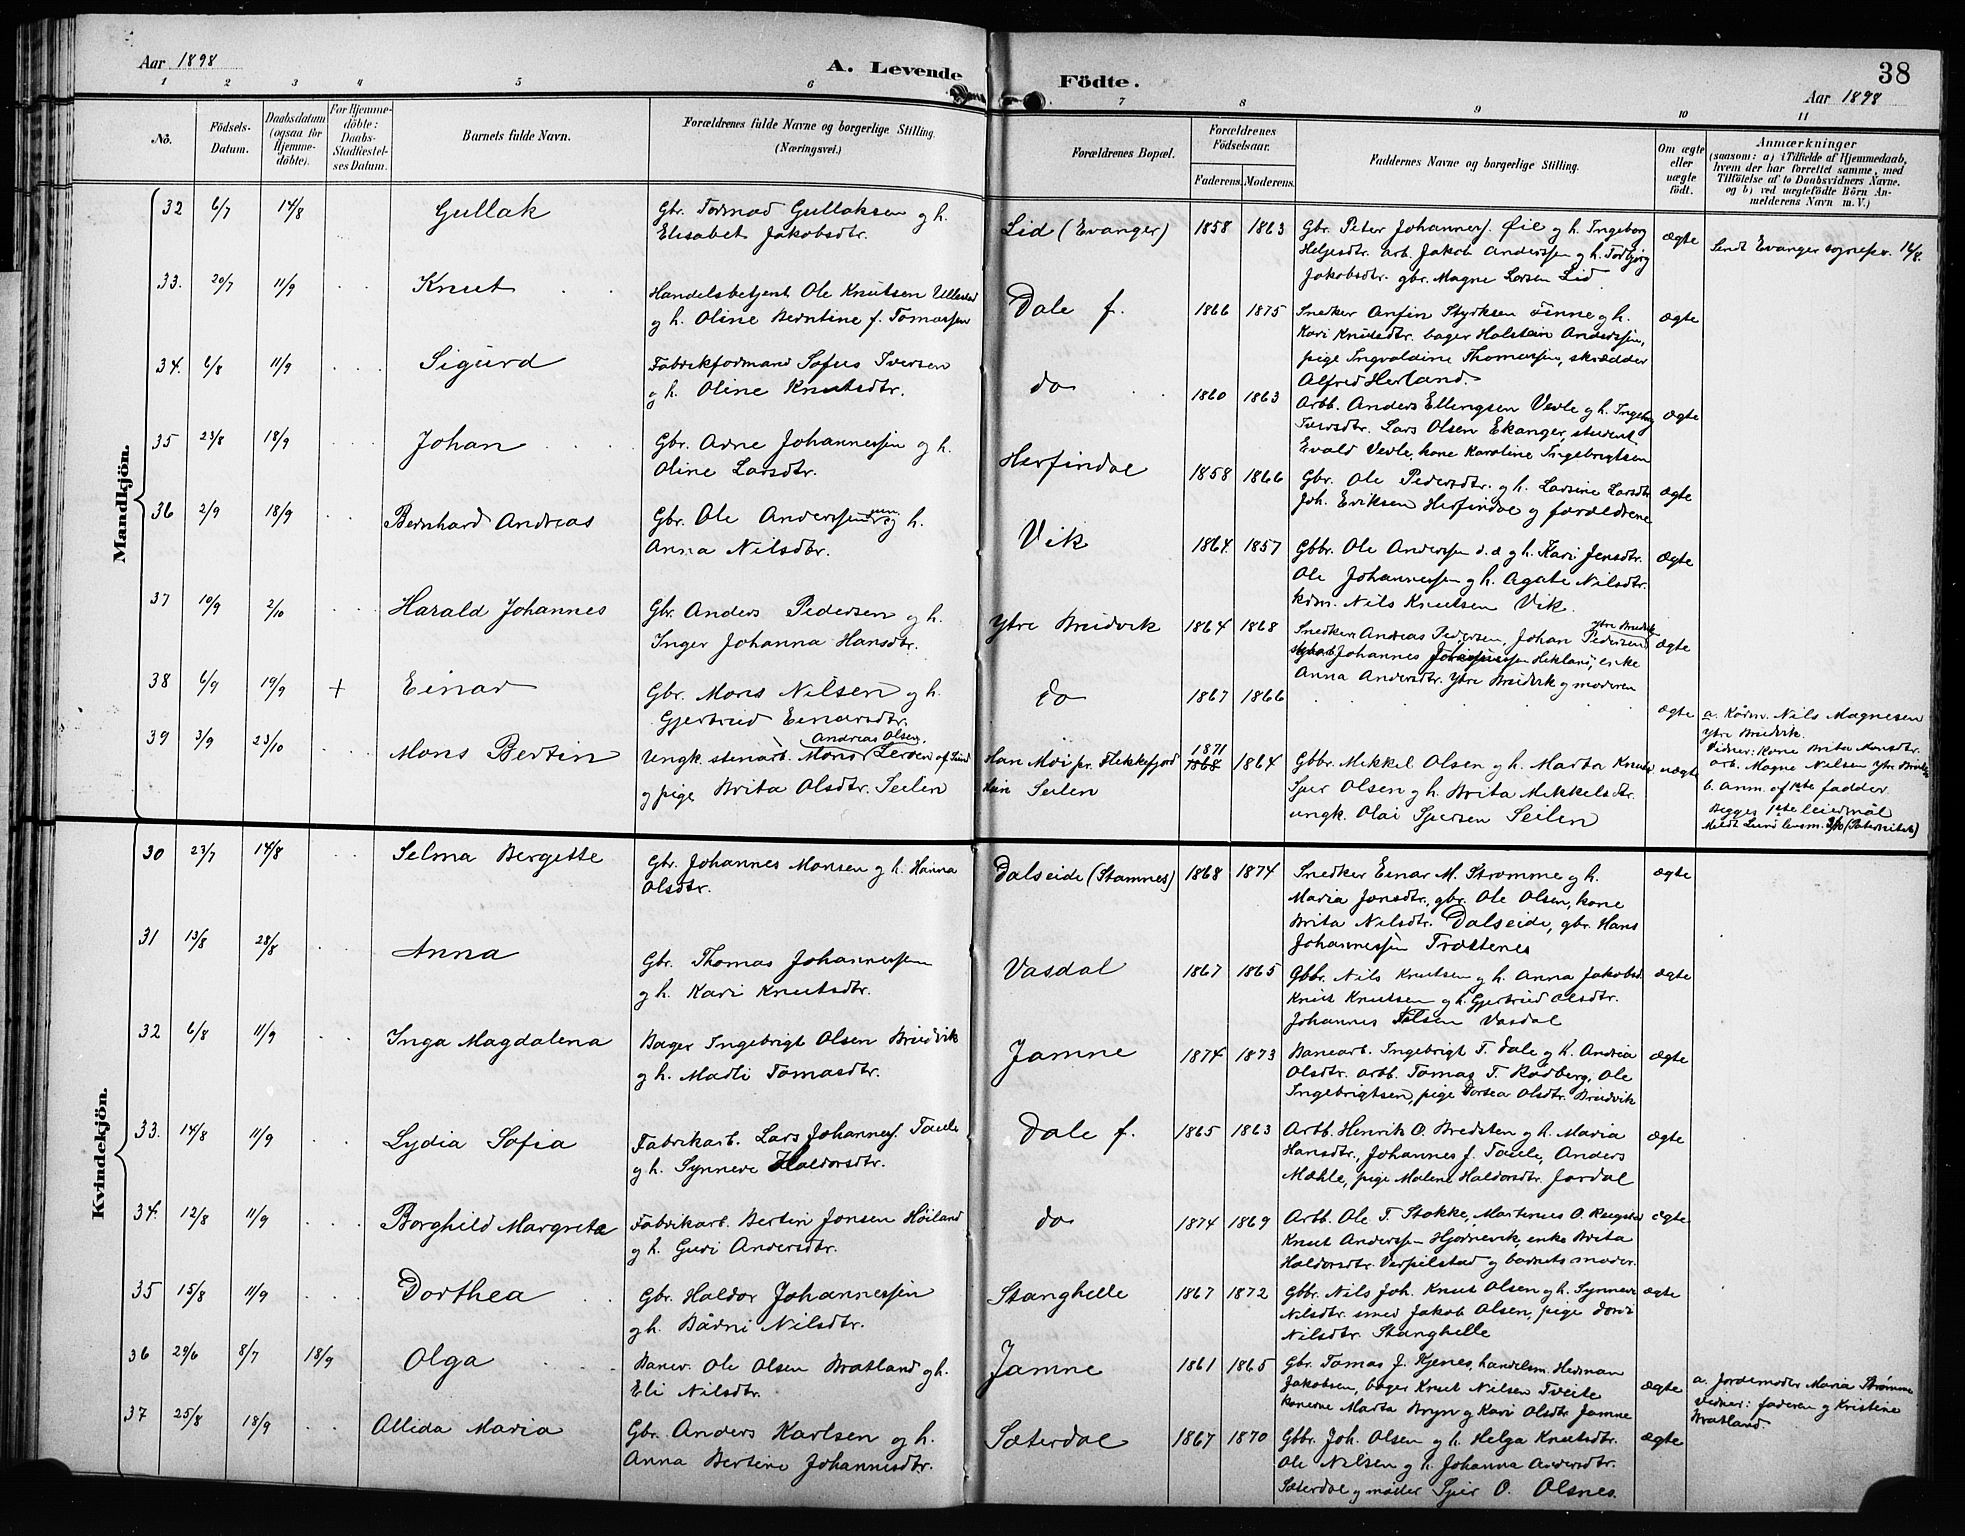 Aar 1898
A. Levende Födte.
38
Aar 1898
1 2 3 4 5 6 7 8 9 10 11
No.
Födsels-Datum.
Daabsdatum (ogsaa for Hjemme-döbte).
For Hjemme-döbte: Daabs-Stadfæstelses Datum.
Barnets fulde Navn.
Forældrenes fulde Navne og borgerlige Stilling. (Næringsvei.)
Forældrenes Bopæl.
Forældrenes Födselsaar.
Faderens. Moderens.
Faddernes Navne og borgerlige Stilling.
Om ægte eller uægte födt.
Anmærkninger
(saasom: a) i Tilfælde af Hjemmedaab, hvem der har forrettet samme, med Tilföielse af to Daabsvidners Navne, og b) ved uægtefödte Börn Anmelderens Navn m. V.)
Mandkjön.
32 6/7 14/8 Gullak
Gbr. Tormod Gullaksen og h.
Elisabet Jakobsdtr.
Lid (Evanger) 1858 1863
Gbr. Peter Johanness. Øie og h. Ingeborg
Helgesdtr. arb. Jakob Anderssen og h. Torbjørg
Jakobsdtr. gbr. Magne Larsen Lid.
ægte
Sendt Evanger sognepr. 16/8.
33. 20/7 11/9 Knut
Handelsbetjent Ole Knutsen Ullestad
og h. Oline Berntine f. Tomassen
Dale f. 1866 1875
Snedker Anfin Styrksen Finne og h.
Kari Knutsdtr. bager Halstein Anderssen,
pige Ingvaldine Thomassen, skrædder
Alfred Herland.
ægte
34. 6/8 11/9 Sigurd
Fabrikformand Sofus Iversen
og h. Oline Knutsdtr.
do 1860 1863
Arb. Anders Ellingsen Vevle og h. Ingeborg
Iversdtr. Lars Olsen Ekanger, student
Evald Vevle, kone Karoline Ingebrigtsen
ægte
35 23/8 18/9 Johan
Gbr. Arne Johannessen og h.
Oline Larsdtr.
Herfindal 1858 1866
Gbr. Ole Pedersdtr. og h. Larsine Larsdtr
Joh. Eriksen Herfindal og forældrene
ægte
36 2/9 18/9 Bernhard Andreas
Gbr. Ole Anderssen og h.
Anna Nilsdtr.
Vik 1864. 1857
Gbbr. Ole Anderssen d. æ og h. Kari Jensdtr.
Ole Johannessen og h. Agate Nilsdtr.
kdm. Nils Knutsen Vik.
ægte
37 10/9 2/10 Harald Johannes
Gbr. Anders Pedersen og h.
Inger Johanna Hansdtr.
Ytre Bruvik 1864 1868
Snedkere Andreas Pedersen, Johan Pedersen Ytre Bruvik
Johannes Hekland, enke
Anna Andersdtr. Ytre Bruvik og moderen
ægte
38 6/9 19/9 + Einar
Gbr. Mons Nilsen og h.
Gjertrud Einarsdtr.
do 1867 1866
ægte
a. Kårm. Nils Magnesen
Ytre Bruvik.
Vidner: Kone Brita Monsdtr.
arb. Magne Nilsen Ytre Bruvik
39 3/9 23/10 Mons Bertin
Ungk. stenarb. Andreas Olsen
og pige Brita Olsdtr. Seilen
Han Moi pr. Flekkefjord
Hun Seilen
1871 1868 1864
Gbbr. Mikkel Olsen og h. Marta Knutsd
Sjur Olsen og h. Brita Mikkelsdtr.
ungk. Olai Sjursen Seilen
uægte
b. Anm. af 1ste fadder.
Begges 1ste leiermål
Meldt Lund lensm. 3/10 (Paternitet)
Kvindekjön.
30 23/7 14/8 Selma Bergette
Gbr. Johannes Monsen og h. Hanna
Olsdtr.
Dalseide (Stamnes) 1868 1874
Snedker Einar M. Strømme og h.
Maria Jonsdtr., gbr. Ole Olsen, kone
Brita Nilsdtr. Dalseide, gbr. Hans
Johannessen Trættenes
ægte
31 13/8 28/8 Anna
Gbr. Thomas Johannessen
og h. Kari Knutsdtr.
Vasdal 1867 1865
Gbbr. Nils Knutsen og h. Anna Jakobsd.
Knut Knutsen og h. Gjertrud Olsdtr.
Johannes Vasdal
ægte
32 6/8 11/9 Inga Magdalena
Bager Ingebrigt Olsen Bruvik
og h. Madli Tomasdtr.
Jamne 1874 1873
Banearb. Ingebrigt T. Dale og h. Andrea
Olsdtr. arb. Tomas T. Rødberg, Ole
Ingebrigtsen, pige Dortea Olsdtr. Bruvik
ægte
33. 14/8 11/9 Lydia Sofia
Fabrikarb. Lars Johanness. Taule
og h. Synneve Haldorsdtr.
Dale f. 1865 1863
Arb. Henrik O. Bredsten og h. Maria
Hansdtr., Johannes J. Taule, Anders
Mæhle, pige Malene Haldorsdtr. Jordal
ægte
34. 12/8 11/9 Borghild Margreta
Fabrikarb. Bertin Jonsen Høiland
og h. Guri Andersdtr.
do 1874 1869
Arb. Ole T. Stokke, Martenus O.
Knut Anderssen Hjørnevik, enke Brita
Haldorsdtr. Verpilstad og barnets moder.
ægte
35 15/8 11/9 Dorthea
Gbr. Haldor Johannessen
og h. Bårni Nilsdtr.
Stanghelle 1867 1872
Gbbr. Nils Joh. Knut Olsen og h. Synneve
Nilsdtr. smed Jakob Olsen, pige Dordi
Nilsdtr. Stanghelle
ægte
36 29/6 8/7 18/9 Olga
Banev. Ole Olsen Bratland og h.
Eli Nilsdtr.
Jamne 1861 1865
Gbr. Tomas J. Kjenes, handelsm. Herman
Jakobsen, bager Knut Nilsen Tveite
konerne Marta Bryn og Kari Olsdtr. Jamne
ægte
a. Jordemoder Maria Strømme
Vidner: faderen og Kristine
Bratland
37 25/8 18/9 Allida Maria
Gbr. Anders Karlsen og h.
Anna Bertine Johannesdtr.
Sæterdal 1867 1870
Gbbr. Joh. Olsen og h. Helga Knutsdtr.
Ole Nilsen og h. Johanna Andersdtr.
Sæterdal og møller Sjur O. Olsnes.
ægte